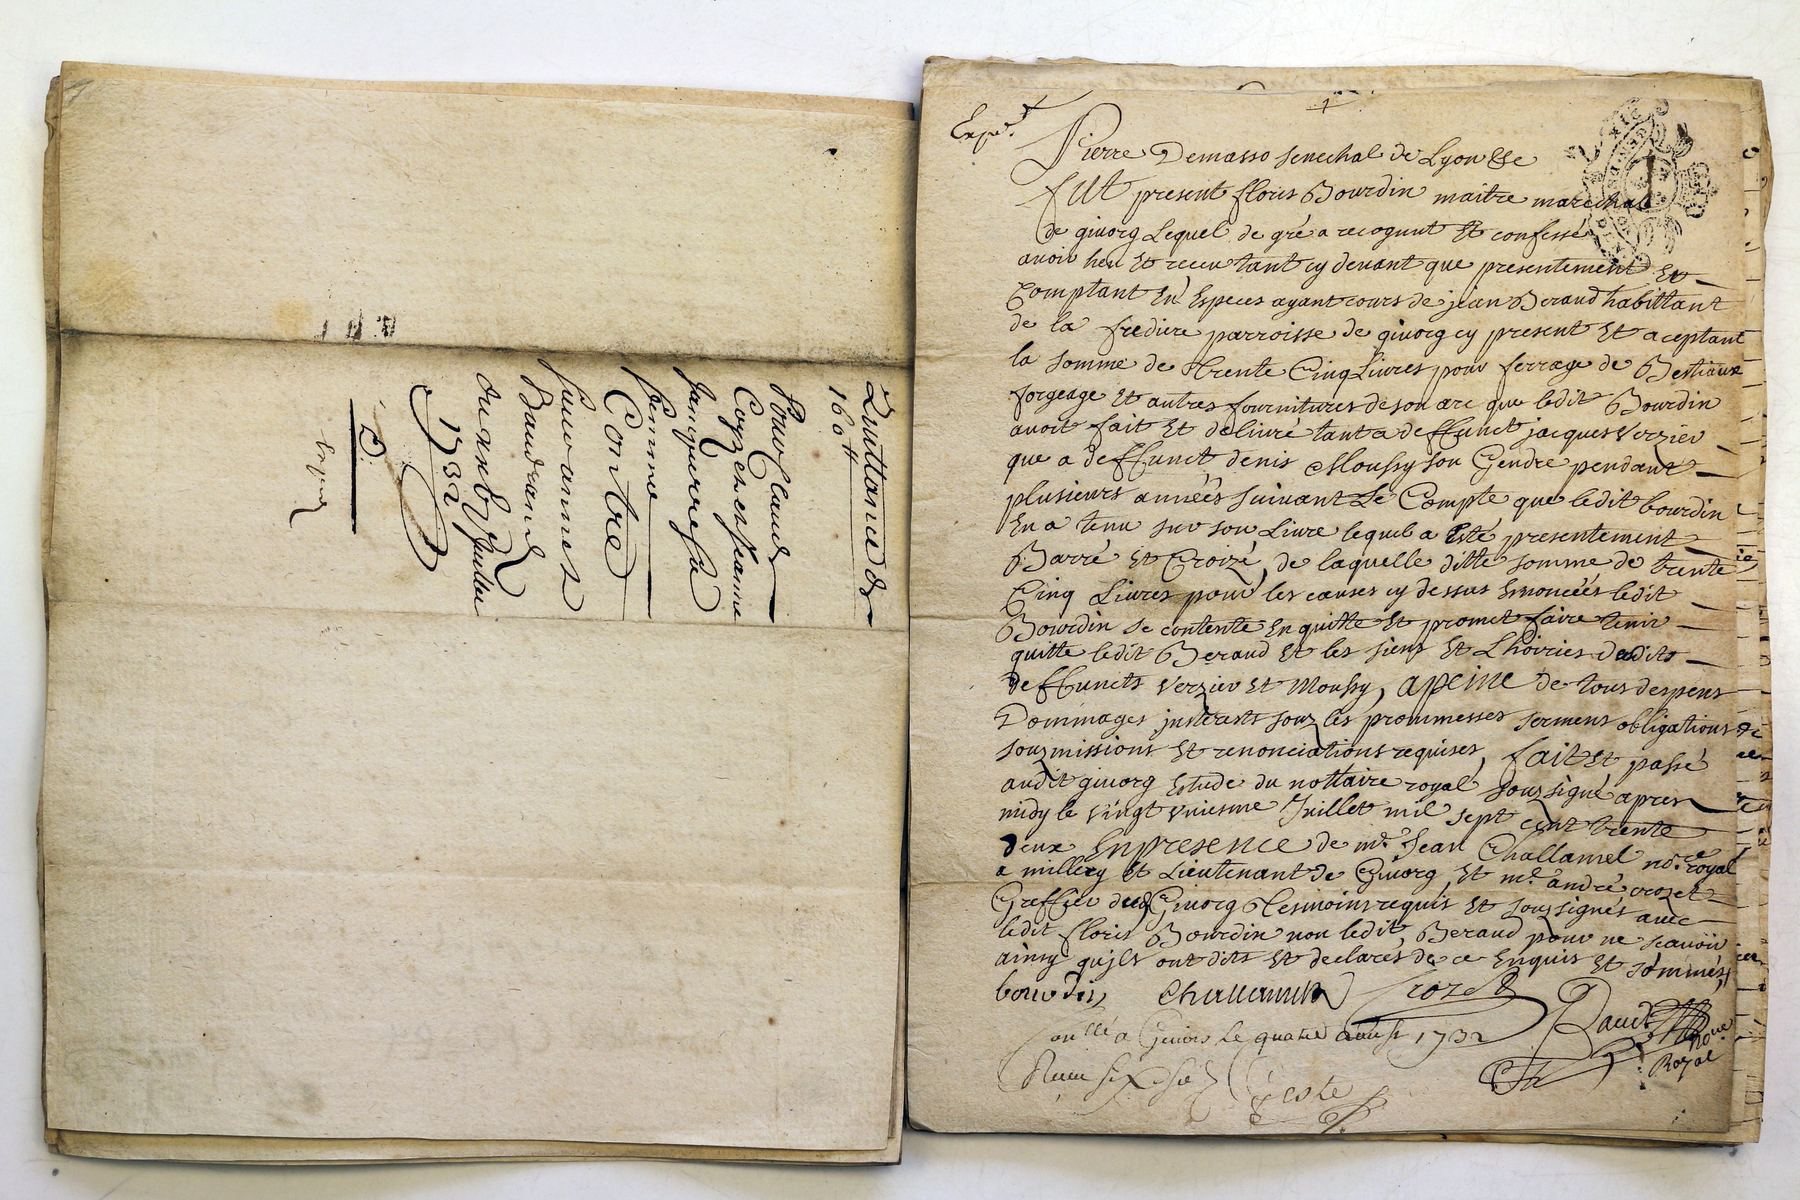 Quittance de
160 tt
Pour Claude
Coyzet et Jeanne
femme
Contre
Suzanne
Baudrand
du xxbe Juillet
1732
Exped
Exped
Pierre Demasso senechal de Lyon &c
fut present floris Bourdin maitre marechal
de givorg Lequel de gré a recognut Et confessé
avoir heu Et receu tant cy devant que presentement Et
Comptant En Especes ayant cours de jean Beraud habittant
de la fredière parroisse de givorg cy present Et aceptant
la somme de Trente Cinq Livres pour ferrage de Bestiaux
forgeage Et autres fournitures de son art que ledit Bourdin
avoit fait Et delivré tant a deffunct jacques Verzier
que a deffunct denis Moussy son Gendre pendant
plusieurs années suivant Le Compte que ledit bourdin
En a tenu sur son Livre lequel a Esté presentement
Barré Et Croizé, de laquelle ditte somme de trente
Cinq Livres pour les causes cy dessus Enoncées ledit
Bourdin se contente En quitte Et promet faire tenir
quitte ledit Beraud Et les siens Et Lhoiries desdits
deffuncts Verzier Et Moussy, apeine de tous despens
Dommages interests souz les prommesses sermens obligations
souzmissions Et renonciations requises, fait Et passé
audit givorg Estude du nottaire royal souzsigné apres
midy le vingt Uniesme Juillet mil sept cent trente
deux En presence de me. Jean Challamel nore royal
a millery Et Lieutenant de Givorg, Et me. andré crozet
Greffier dud Givorg Tesmoins requis Et souzsignés avec
ledit floris Bourdin non ledit Beraud pour ne scavoir
ainsy qu'jls ont dits Et declarés de ce Enquis Et sommés,
bourdin Challamel Crozet
Conllé a Givors Le quatre aoust 1732
Receu six s
Royal